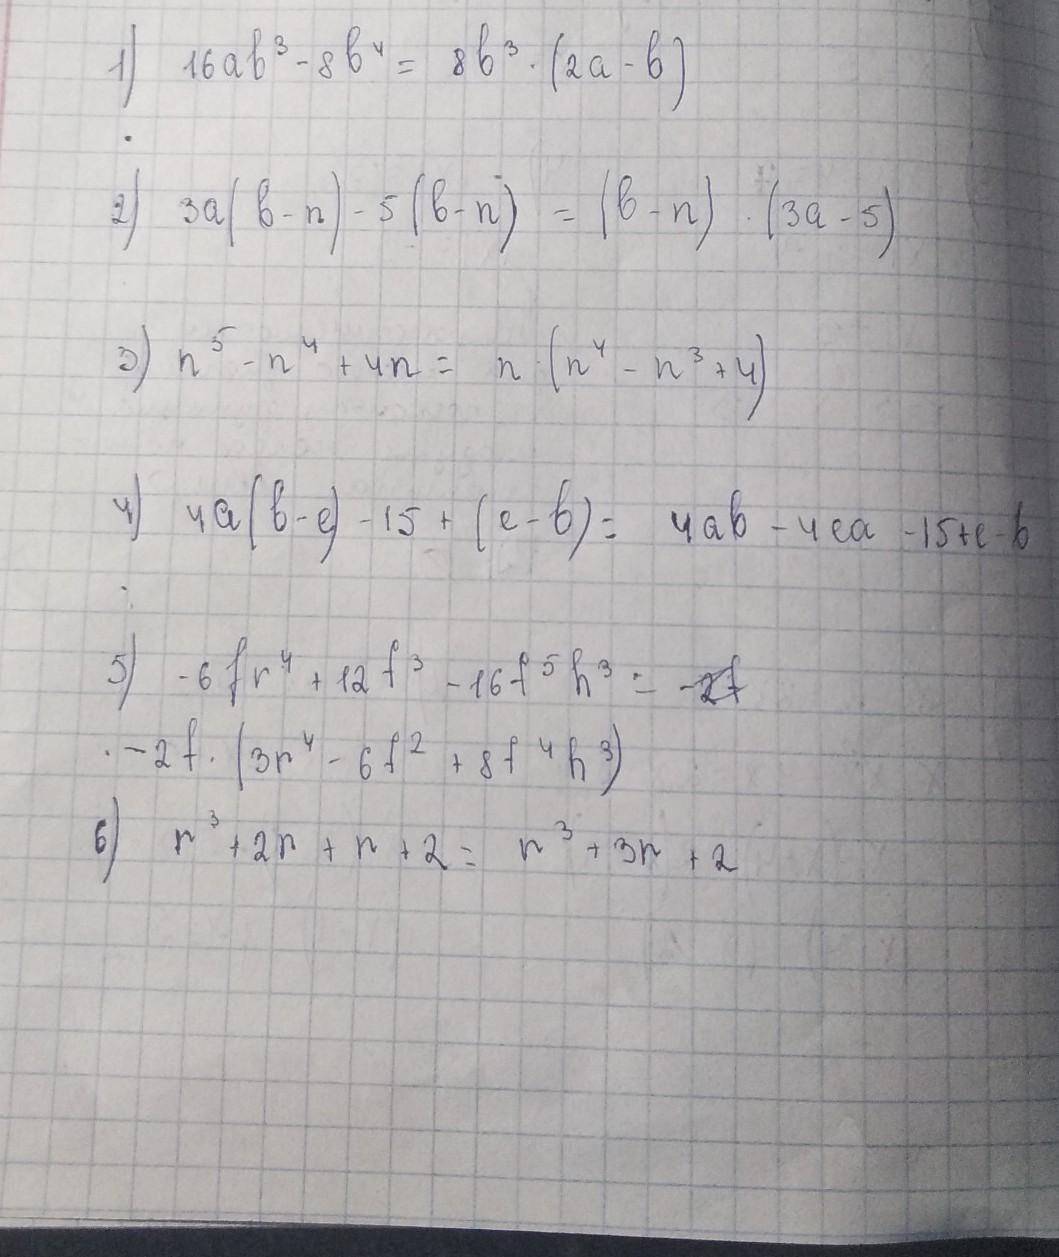 1) 16ab³ - 8b⁴ = 8b³ · (2a - b)
2) 3a(b - n) - 5(b - n) = (b - n) · (3a - 5)
3) n⁵ - n⁴ + 4n = n · (n⁴ - n³ + 4)
4) 4a(b - c) - 15 + (c - b) = 4ab - 4ca - 15 + c - b
5) -6fr⁴ + 12f³ - 16f⁵h³ =
· -2f · (3r⁴ - 6f² + 8f⁴h³)
6) r³ + 2r + r + 2 = r³ + 3r + 2